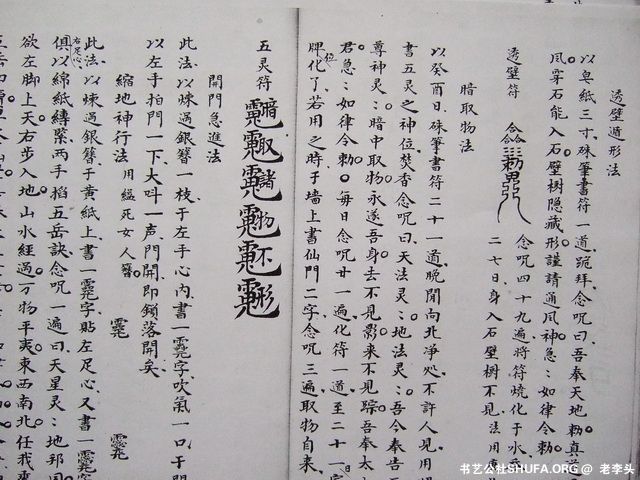 透壁遁形法
以皂紙三寸硃筆書符一道跪拜念咒曰吾奉天地勅真
風穿石能入石壁樹隐藏形謹請通風神急：如律令勅
透壁符
念咒四十九遍將符燒化于水
二七日身入石壁樹不見法用
暗取物法
以癸酉日硃筆書符二十一道晚間向北凈処不許人見用
書五灵之神位焚香念咒曰天法灵：地法灵：吾今奉告
尊神灵：暗中取物永逐吾身去不見影來不見踪吾奉太
君急：如律令勅每日念咒廿一遍化符一道至二十一日
牌位化了若用之時于墙上書仙門二字念咒三遍取物自来
五灵符
暗取諸物不形
開門急進法
此法以煉過銀簪一枝于左手心內書一字吹氣一口于門
以左手拍門一下大呌一声門開即鎖落開矣
縮地神行法
用縊死女人簪
此法以煉過銀簪于黃紙上書一字貼左足心又書一字
右足心
俱以綿紙縛緊兩手搯五岳訣念咒一遍曰天星灵：地
欲左脚上天右步入地山水經過万物平夷東西南北任我
书艺公社SHUFA.ORG @ 老李头